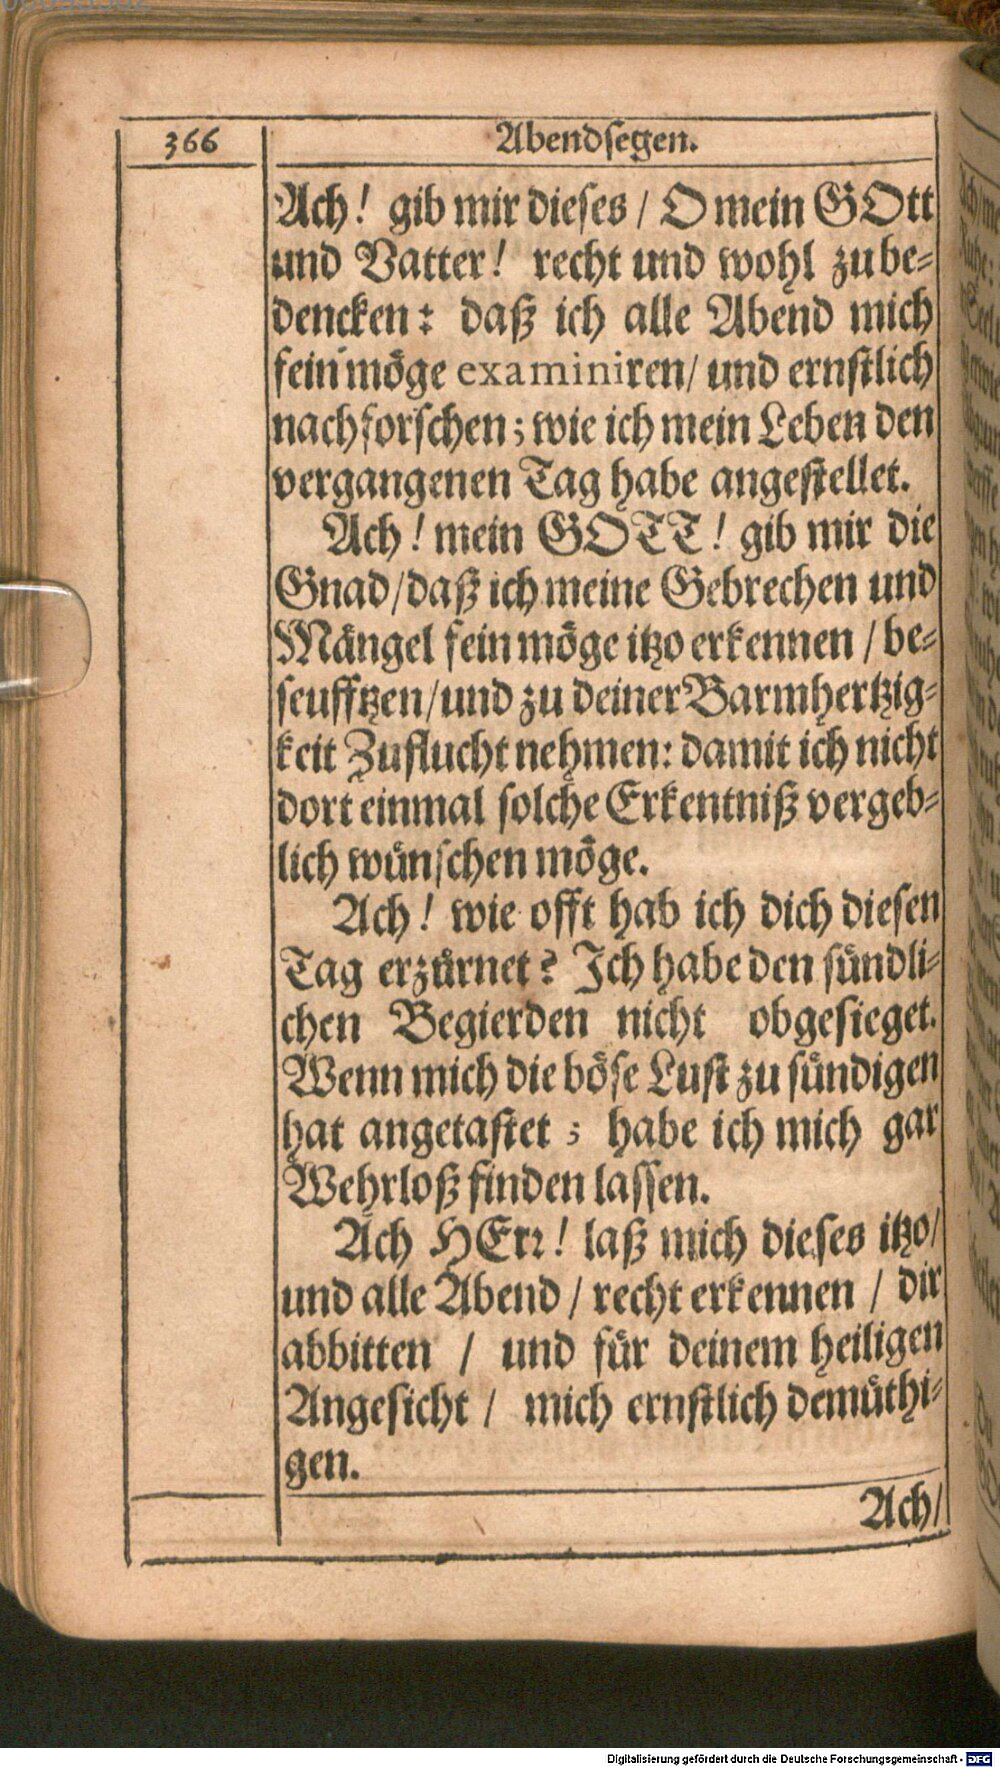 366
Abendsegen.
Ach! gib mir dieses / O mein GOtt
und Vatter! recht und wohl zu be-
dencken: daß ich alle Abend mich
fein möge examiniren / und ernstlich
nachforschen; wie ich mein Leben den
vergangenen Tag habe angestellet.
Ach! mein GOTT! gib mir die
Gnad / daß ich meine Gebrechen und
Mängel fein möge itzo erkennen / be-
seufftzen / und zu deiner Barmhertzig-
keit Zuflucht nehmen: damit ich nicht
dort einmal solche Erkentniß vergeb-
lich wünschen möge.
Ach! wie offt hab ich dich diesen
Tag erzürnet? Ich habe den sündli-
chen Begierden nicht obgesieget.
Wenn mich die böse Lust zu sündigen
hat angetastet; habe ich mich gar
Wehrloß finden lassen.
Ach HErr! laß mich dieses itzo /
und alle Abend / recht erkennen / dir
abbitten / und für deinem heiligen
Angesicht / mich ernstlich demüthi-
gen.
Ach /
Digitalisierung gefördert durch die Deutsche Forschungsgemeinschaft - DFG